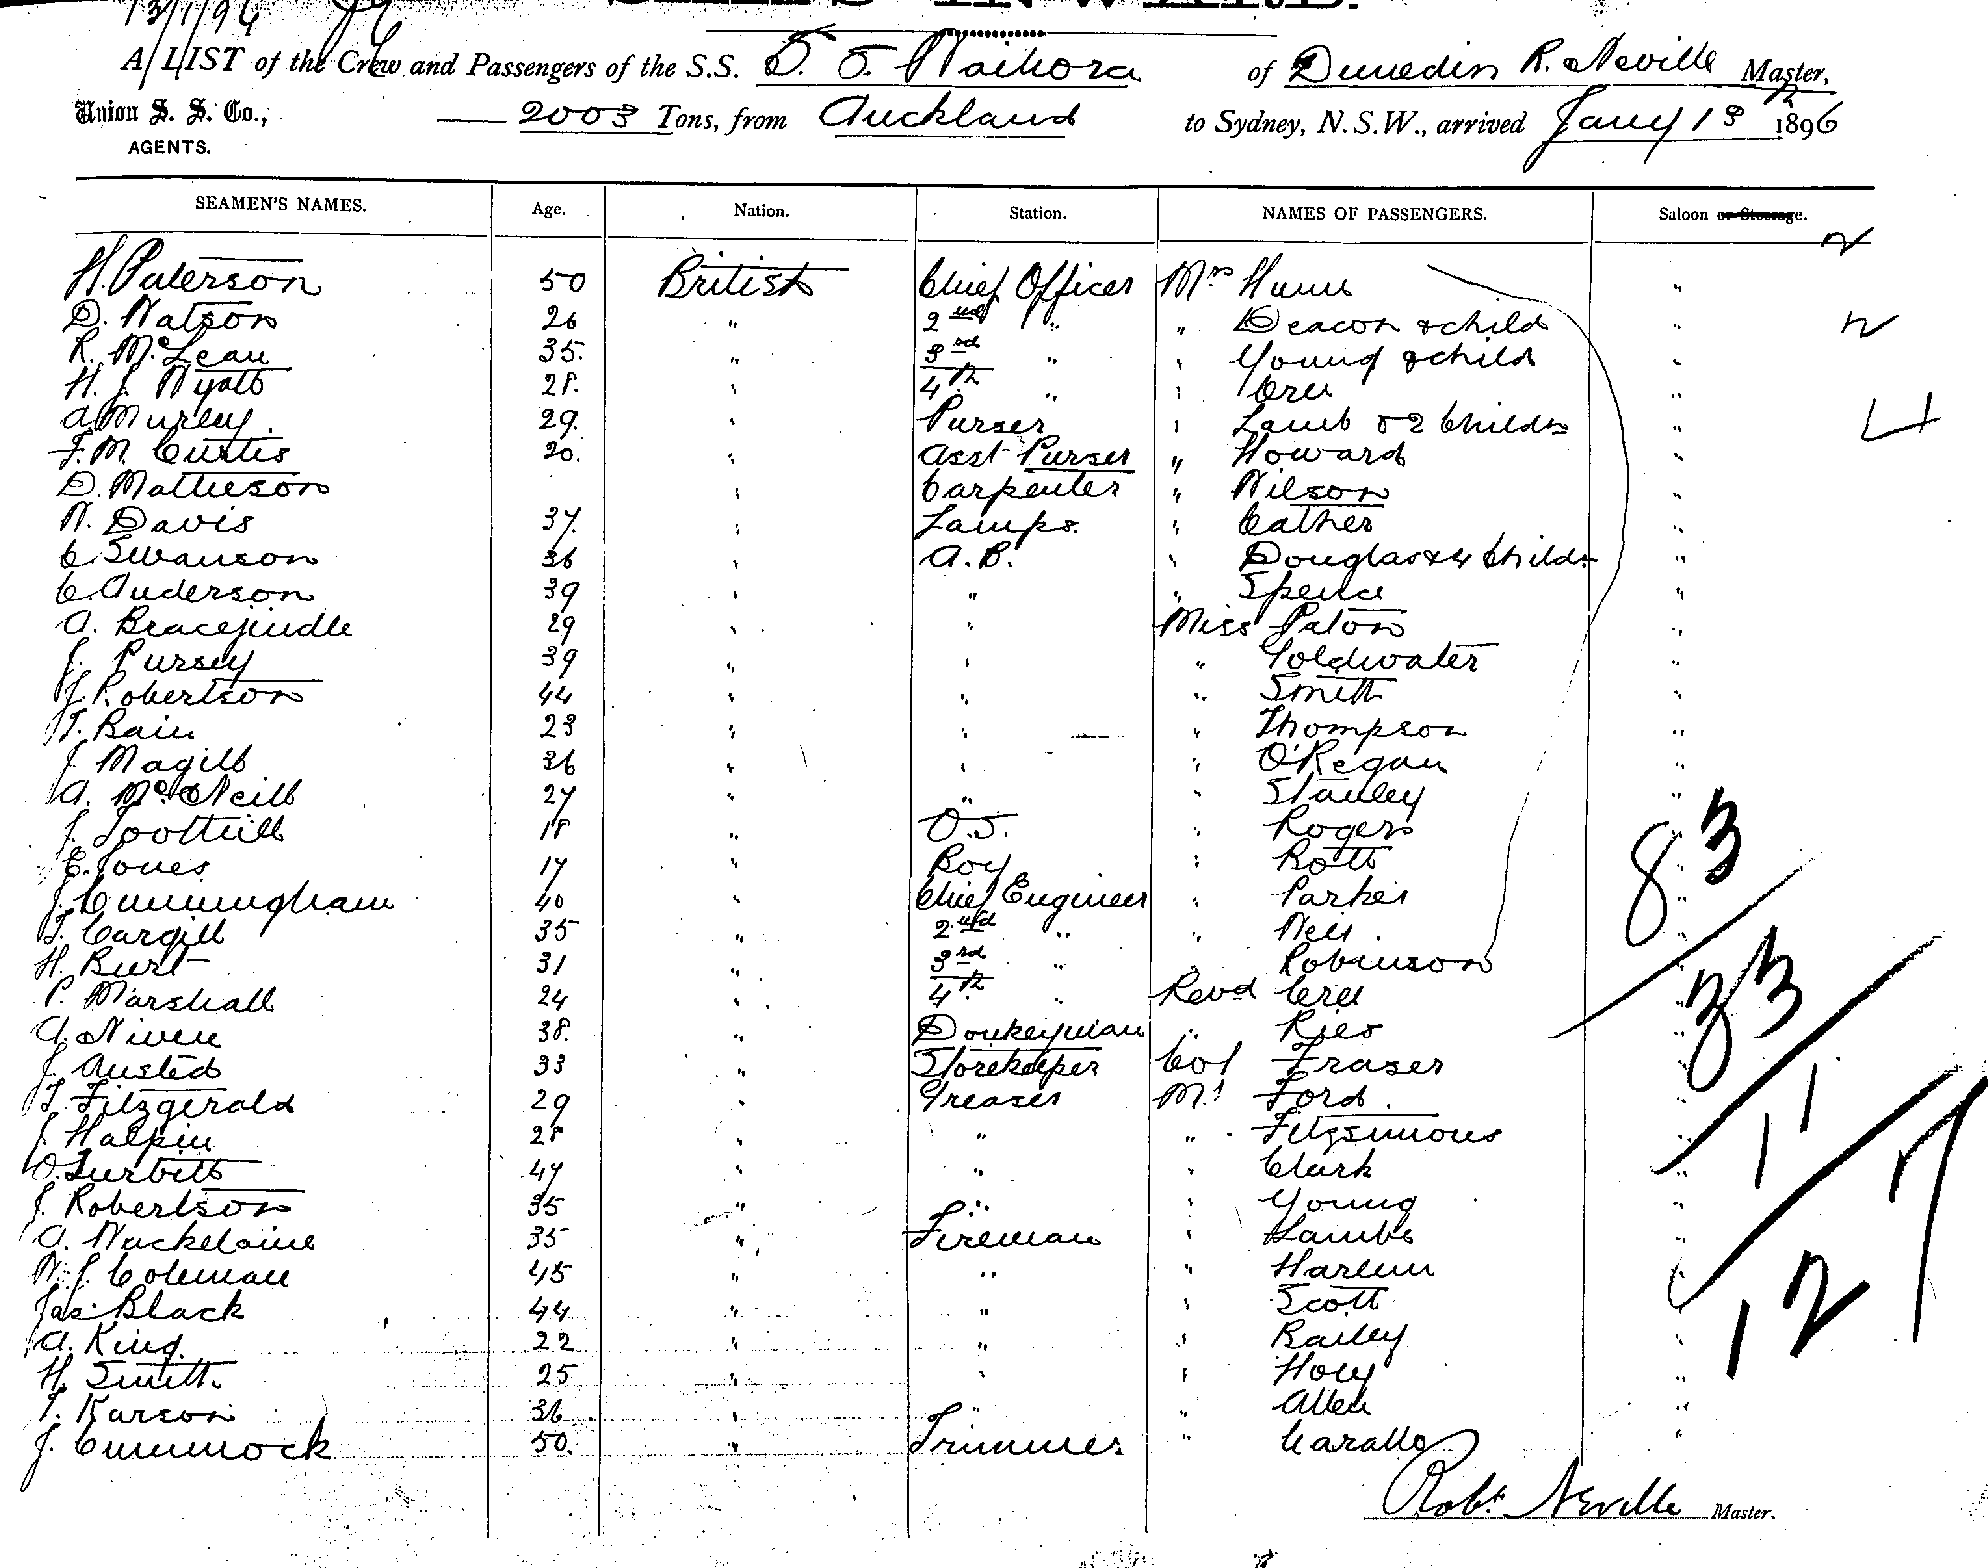 13/1/96
SHIPS INWARD.
A LIST of the Crew and Passengers of the S.S. S. S. Waihora of Dunedin R. Neville Master,
Union S. S. Co., AGENTS. 2003 Tons, from Auckland to Sydney, N.S.W., arrived Jany 13th 1896
SEAMEN'S NAMES. Age. Nation. Station. NAMES OF PASSENGERS. Saloon or Steerage.
H. Paterson 50 British Chief Officer Mrs Hume "
D. Watson 26 " 2nd " " Deacon & child "
R. McLean 35. " 3rd " " Young & child "
H. J. Wyatt 28. " 4th " "
A Murley. 29. " Purser " Lamb & 2 Childn "
F. M. Curtis 20. " Asst Purser " Howard "
D. Matheson " Carpenter " Wilson "
W. Davis 37. " Lamps. " Cather "
C Swanson 36 " A. B. " Douglas & 4 Childn "
C. Anderson 39 " " " Spence "
A. Bracejindle 29 " " Miss Paton "
J. Pursey 39 " " " Goldwater "
J Robertson 44 " " " Smith "
T. Bain 23 " " " Thompson "
J Magill 36 " " " O'Regan "
A. McNeill 27 " " " Stanley "
J. Toothill 18 " O.S. " Rogers "
E. Jones 17 " Boy " Rotts "
J. Cunningham 40 " Chief Engineer " Parker "
T. Cargill 35 " 2nd " " "
H. Burt 31 " 3rd " " Robinson "
P. Marshall 24 " 4th " Revd "
A. Niven 38. " Donkeyman " Ries "
J. Austed 33 " Storekeeper Col Fraser "
T. Fitzgerald 29 " Greaser Mr Ford. "
J. Halpin 28 " " " Fitzsimons "
O. Turbitt 47 " " " Clark "
J. Robertson 35 " " " Young "
A. Nackelaine 35 " Fireman " Lambe "
W. J. Coleman 45 " " " "
Jas. Black 44 " " " Scott "
A. King. 22 " " " Bailey "
H. Smith. 25 " " " Hoey "
T. Karson 36 " " " Allen "
J. Cummock 50. " Trimmer " "
83
33
11
127
Robt Neville Master.